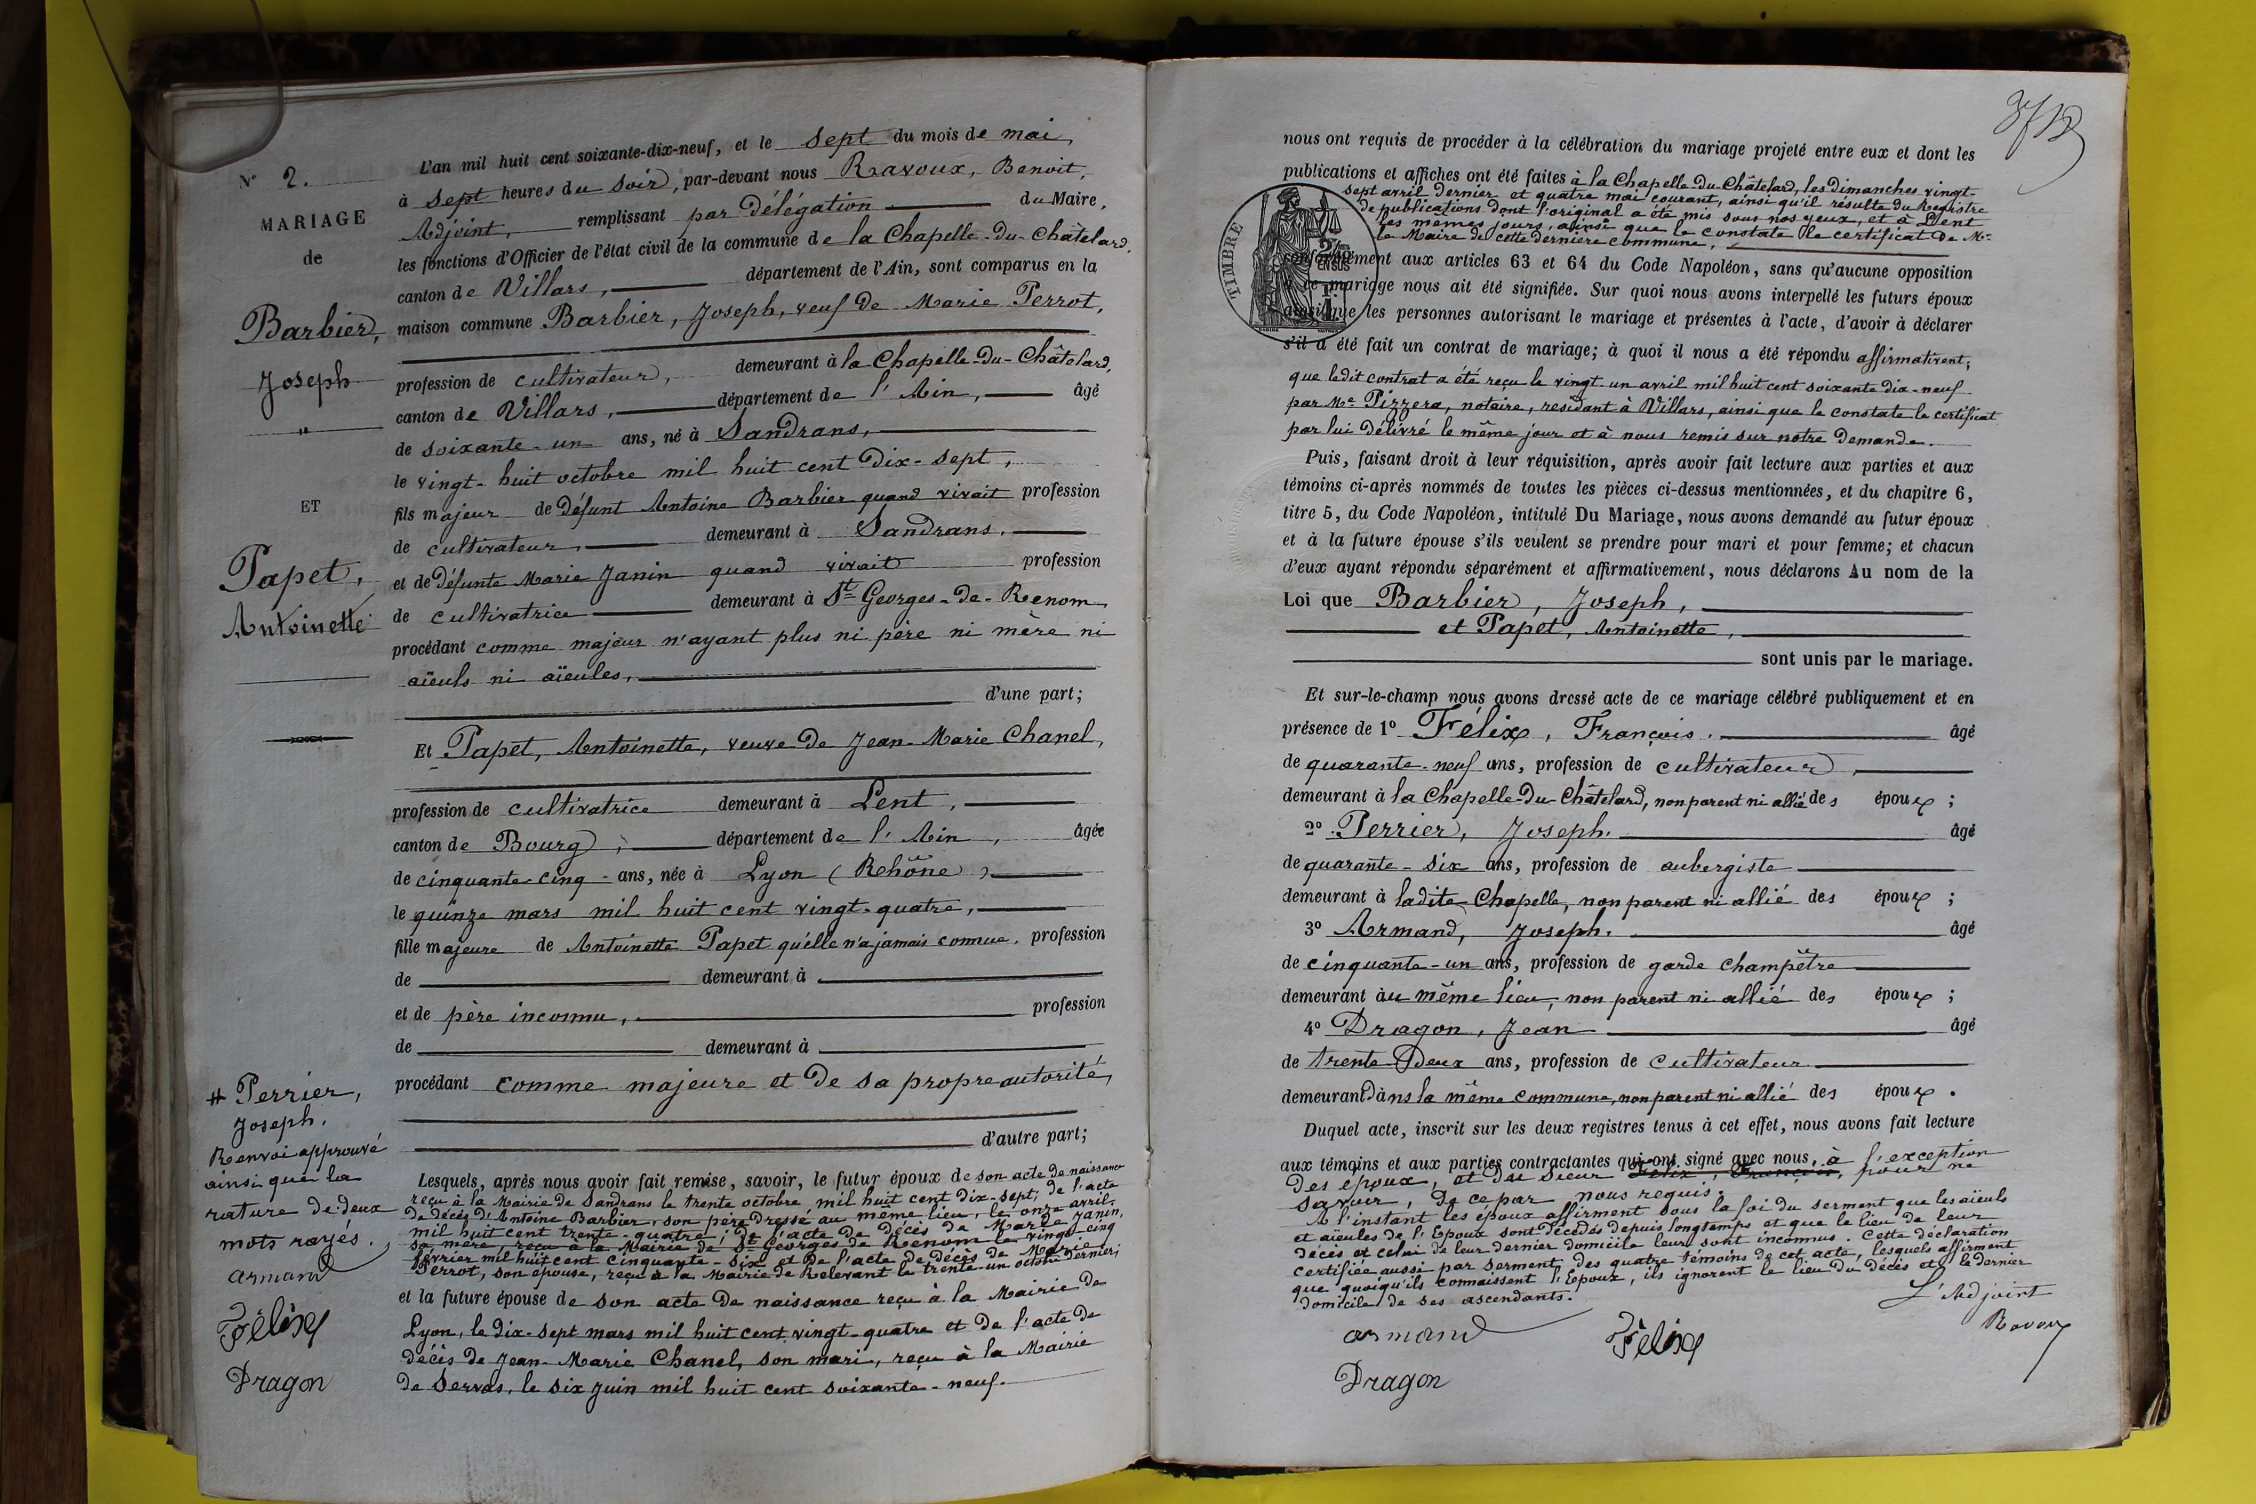 N° 2.
MARIAGE
de
Barbier,
Joseph
"
ET
Papet,
Antoinette
# Perrier,
Joseph.
Renvoi approuvé
ainsi que la
rature de deux
mots rayés.
Armand
Félix
Dragon
L'an mil huit cent soixante-dix-neuf, et le sept du mois de mai,
à sept heures du soir, par-devant nous Ravoux, Benoit,
Adjoint, remplissant par délégation du Maire,
les fonctions d'Officier de l'état civil de la commune de la Chapelle-du-Châtelard,
canton de Villars, département de l'Ain, sont comparus en la
maison commune Barbier, Joseph, veuf de Marie Perrot,
profession de cultivateur, demeurant à la Chapelle-du-Châtelard,
canton de Villars, département de l'Ain, âgé
de soixante-un ans, né à Sandrans,
le vingt-huit octobre mil huit cent dix-sept,
fils majeur de défunt Antoine Barbier quand vivait profession
de cultivateur, demeurant à Sandrans,
et de défunte Marie Janin quand vivait profession
de cultivatrice demeurant à St Georges-de-Renom
procédant comme majeur n'ayant plus ni père ni mère ni
aïeuls ni aïeules,
d'une part;
Et Papet, Antoinette, veuve de Jean-Marie Chanel,
profession de cultivatrice demeurant à Lent,
canton de Bourg, département de l'Ain, âgée
de cinquante-cinq ans, née à Lyon (Rhône)
le quinze mars mil huit cent vingt-quatre,
fille majeure de Antoinette Papet qu'elle n'a jamais connue. profession
de demeurant à
et de père inconnu, profession
de demeurant à
procédant comme majeure et de sa propre autorité,
d'autre part;
Lesquels, après nous avoir fait remise, savoir, le futur époux de son acte de naissance
reçu à la Mairie de Sandrans le trente octobre mil huit cent dix-sept, de l'acte
de décès d'Antoine Barbier, son père dressé au même lieu, le onze avril
mil huit cent trente-quatre, de l'acte de décès de Marie Janin,
sa mère reçu à la Mairie de St Georges de Renom le vingt-cinq
février mil huit cent cinquante-six et de l'acte de décès de Marie
Perrot, son épouse, reçu à la Mairie de Relevant le trente-un octobre dernier;
et la future épouse de son acte de naissance reçu à la Mairie de
Lyon, le dix-sept mars mil huit cent vingt-quatre et de l'acte de
décès de Jean-Marie Chanel, son mari, reçu à la Mairie
de Servas, le six juin mil huit cent soixante-neuf.
nous ont requis de procéder à la célébration du mariage projeté entre eux et dont les
publications et affiches ont été faites à la Chapelle-du-Châtelard, les dimanches vingt-
sept avril dernier et quatre mai courant, ainsi qu'il résulte du Registre
de publications dont l'original a été mis sous nos yeux, et à Lent
les mêmes jours, ainsi que le constate le certificat de Mr
le Maire de cette dernière commune,
TIMBRE
2/10 EN SUS
conformément aux articles 63 et 64 du Code Napoléon, sans qu'aucune opposition
à ce mariage nous ait été signifiée. Sur quoi nous avons interpellé les futurs époux
ainsi que les personnes autorisant le mariage et présentes à l'acte, d'avoir à déclarer
s'il a été fait un contrat de mariage; à quoi il nous a été répondu affirmativent,
que ledit contrat a été reçu le vingt-un avril mil huit cent soixante dix-neuf
par Me Pizzera, notaire, résidant à Villars, ainsi que le constate le certificat
par lui délivré le même jour et à nous remis sur notre demande.
Puis, faisant droit à leur réquisition, après avoir fait lecture aux parties et aux
témoins ci-après nommés de toutes les pièces ci-dessus mentionnées, et du chapitre 6,
titre 5, du Code Napoléon, intitulé Du Mariage, nous avons demandé au futur époux
et à la future épouse s'ils veulent se prendre pour mari et pour femme; et chacun
d'eux ayant répondu séparément et affirmativement, nous déclarons Au nom de la
Loi que Barbier, Joseph,
et Papet, Antoinette,
sont unis par le mariage.
Et sur-le-champ nous avons dressé acte de ce mariage célébré publiquement et en
présence de 1° Félix, François. âgé
de quarante-neuf ans, profession de cultivateur,
demeurant à la Chapelle-du-Châtelard, non parent ni allié des époux;
2° Perrier, Joseph. âgé
de quarante-six ans, profession de aubergiste
demeurant à ladite Chapelle, non parent ni allié des époux;
3° Armand, Joseph. âgé
de cinquante-un ans, profession de garde champêtre
demeurant au même lieu, non parent ni allié des époux;
4° Dragon, Jean âgé
de trente-deux ans, profession de cultivateur
demeurant dans la même commune, non parent ni allié des époux.
Duquel acte, inscrit sur les deux registres tenus à cet effet, nous avons fait lecture
aux témoins et aux parties contractantes qui ont signé avec nous, à l'exception
des époux, et du sieur Félix, François, pour ne
savoir, de ce par nous requis.
A l'instant les époux affirment sous la foi du serment que les aïeuls
et aïeules de l'Epoux sont décédés depuis longtemps et que le lieu de leur
décès et celui de leur dernier domicile leur sont inconnus. Cette déclaration
certifiée aussi par serment des quatre témoins de cet acte, lesquels affirment
que quoiqu'ils connaissent l'Epoux, ils ignorent le lieu du décès et le dernier
domicile de ses ascendants.
L'Adjoint
Armand Félix Ravoux
Dragon